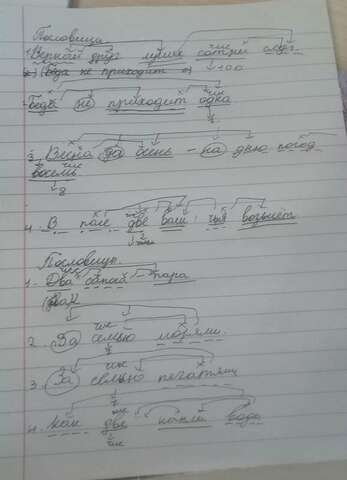 Пословица
1. Верный друг лучше сотни слуг.
2) (Беда не приходит о) ↓100
Беда не приходит одна
3. Весна да осень – на дню погод
восемь
8
4. В поле две воли: чья возьмёт
2
Пословицы.
1. Два сапога – пара
2. За семью
7
3. За семью печатями
7
4. как две капли воды